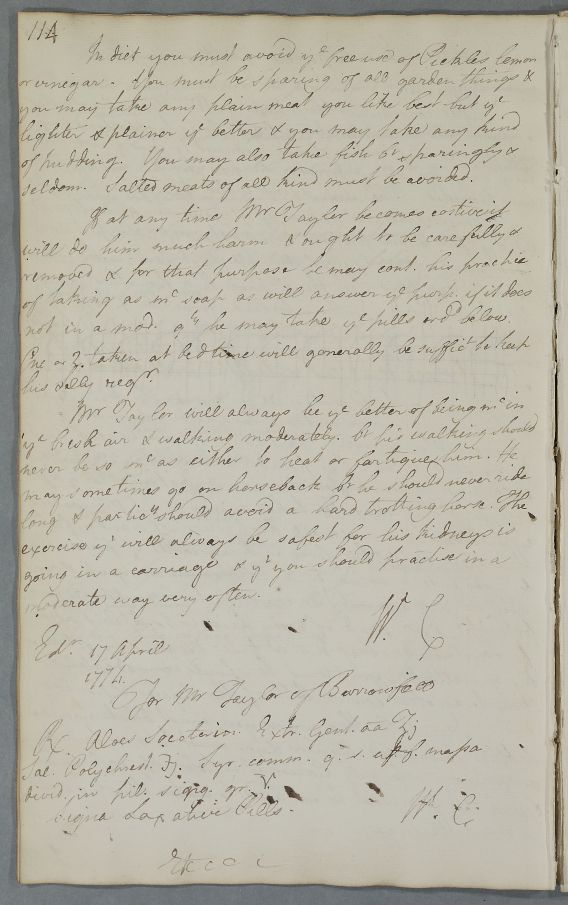 114
In diet you must avoid ye free use of Pickles lemon
or vinegar. You must be sparing of all garden things &
you may take any plain meat you like best but ye
lighter & plainer ye better & you may take any kind
of pudding. You may also take fish bt sparingly &
seldom. Salted meats of all kind must be avoided.
If at any time Mr Taylor becomes costive it
will do him much harm & ought to be carefully
removed & for that purpose he may cont. his practice
of taking as mc soap as will answer ye purp. if it does
not in a mod. qty he may take ye pills ord below
One or 2 taken at bedtime will generally be suffict to keep
his belly regr.
Mr Taylor will always be ye better of being mc in
ye fresh air & walking moderately. bt his walking should
never be so mc as either to heat or fartigue him. He
may sometimes go on horseback bt he should never ride
long & particly should avoid a hard trotting horse. The
exercise yt will always be safest for his kidneys is
going in a carriage & yt you should practise in a
moderate way very often.
W C
Edr. 17 April
1774.
For Mr Taylor of Burrowfield
Rx. Aloes Socotorin. Extr. Gent. aa ʒj
Sal. Polychrest. ʒj. Syr. comm. q. s. ut f. massa
divid. in pil. sing. gr. v.
Signa Laxative Pills.
W. C.